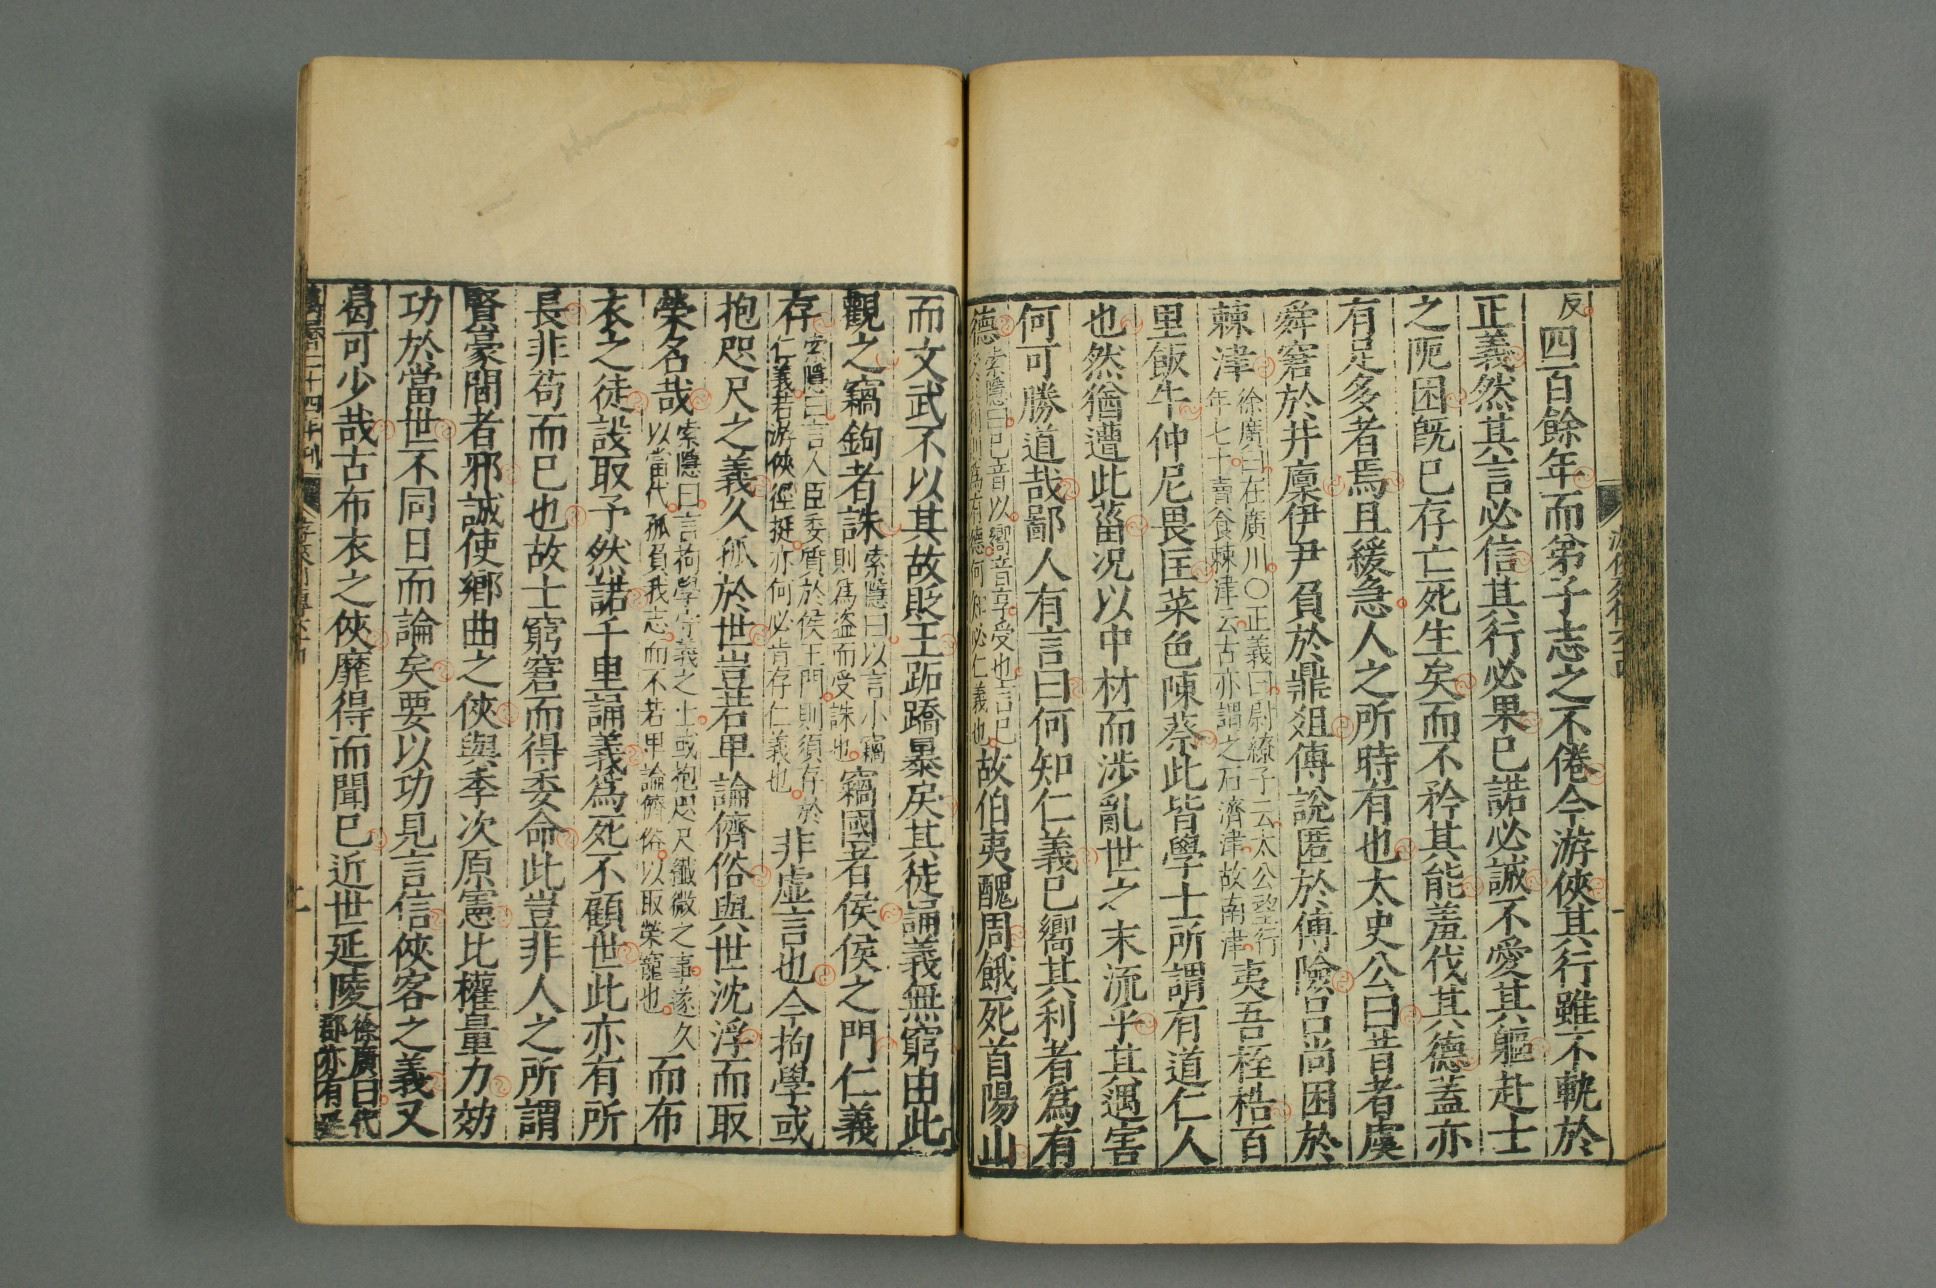 反四百餘年而弟子志之不倦今游俠其行雖不軌於
正義然其言必信其行必果已諾必誠不愛其軀赴士
之阨困既已存亡死生矣而不矜其能羞伐其德蓋亦
有足多者焉且緩急人之所時有也太史公曰昔者虞
舜窘於井廩伊尹負於鼎俎傅說匿於傅險呂尚困於
棘津徐廣曰在廣川○正義曰尉繚子云太公望行年七十賣食棘津云古亦謂之石濟津故南津夷吾桎梏百
里飯牛仲尼畏匡菜色陳蔡此皆學士所謂有道仁人
也然猶遭此菑況以中材而涉亂世之末流乎其遇害
何可勝道哉鄙人有言曰何知仁義已嚮其利者爲有
德索隱曰已音以嚮音享受也言已受其利則爲有德何知必仁義也故伯夷醜周餓死首陽山
而文武不以其故貶王跖蹻暴戾其徒誦義無窮由此
觀之竊鉤者誅索隱曰以言小竊則爲盜而受誅也竊國者侯侯之門仁義
存索隱曰言人臣委質於侯王門則須存於仁義若游俠徑挺亦何必肯存仁義也非虛言也今拘學或
抱咫尺之義久孤於世豈若卑論儕俗與世沈浮而取
榮名哉索隱曰言拘學守義之士或抱咫尺纖微之事遂久以當代孤負我志而不若卑論儕俗以取榮寵也而布
衣之徒設取予然諾千里誦義爲死不顧世此亦有所
長非苟而已也故士窮窘而得委命此豈非人之所謂
賢豪間者邪誠使鄉曲之俠與季次原憲比權量力効
功於當世不同日而論矣要以功見言信俠客之義又
曷可少哉古布衣之俠靡得而聞已近世延陵徐廣曰代郡亦有延